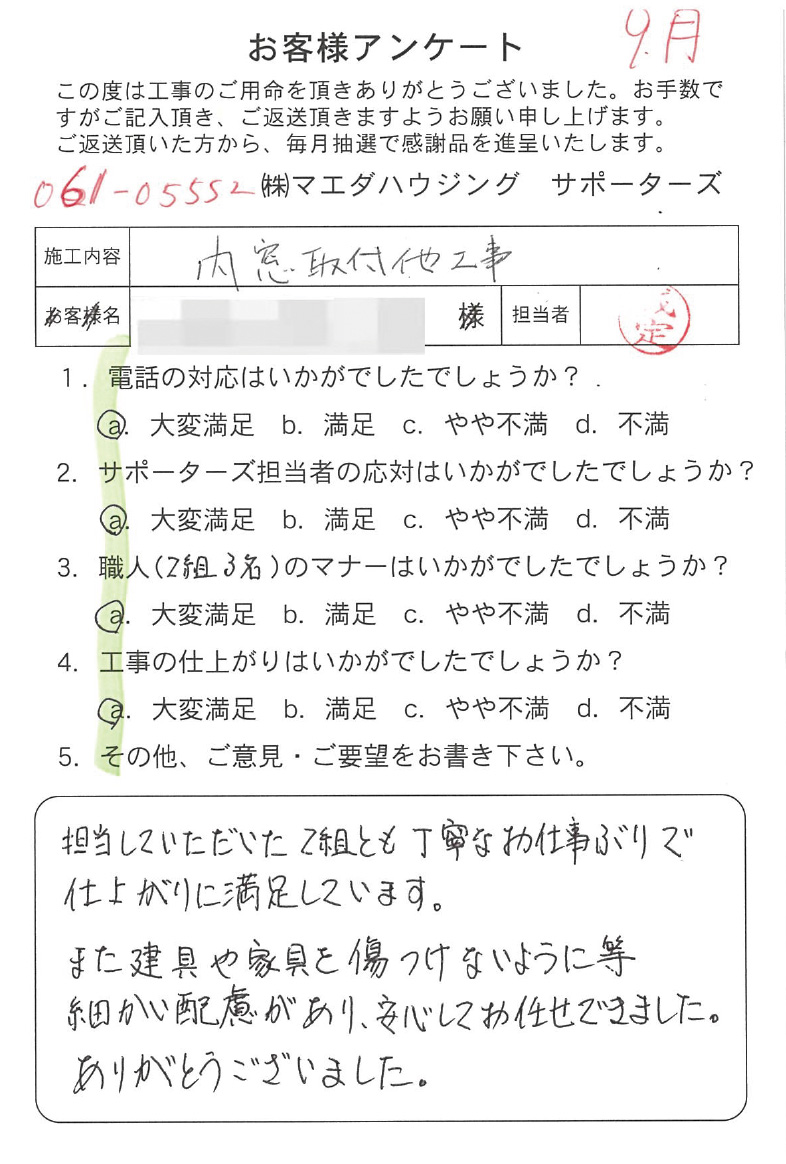 お客様アンケート
9月
この度は工事のご用命を頂きありがとうございました。お手数で
すがご記入頂き、ご返送頂きますようお願い申し上げます。
ご返送頂いた方から、毎月抽選で感謝品を進呈いたします。
061-05552 ㈱マエダハウジング サポーターズ
施工内容 内窓取付他工事
お客様名 様 担当者 定
1. 電話の対応はいかがでしたでしょうか?
a. 大変満足 b. 満足 c. やや不満 d. 不満
2. サポーターズ担当者の応対はいかがでしたでしょうか?
a. 大変満足 b. 満足 c. やや不満 d. 不満
3. 職人(2組3名)のマナーはいかがでしたでしょうか?
a. 大変満足 b. 満足 c. やや不満 d. 不満
4. 工事の仕上がりはいかがでしたでしょうか?
a. 大変満足 b. 満足 c. やや不満 d. 不満
5. その他、ご意見・ご要望をお書き下さい。
担当していただいた2組とも丁寧なお仕事ぶりで
仕上がりに満足しています。
また建具や家具を傷つけないように等
細かい配慮があり、安心してお任せできました。
ありがとうございました。